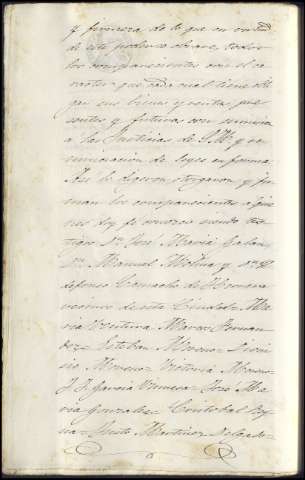 y firmeza de lo que en virtud
de este poder se obrare, todos
los comparecientes con el ca-
racter que cada cual tiene obli
gan sus bienes y rentas pre
sentes y futuras con sumision
a las Justicias de S.M. y re
nunciacion de leyes en forma.
Asi lo digeron, otorgaron, y fir
man los comparecientes a quie
nes doy fe conozco siendo tes
tigos Dn. José Maria Galan
Dn. Manuel Molina y Dn. Yl
defonso Camacho de Herrera
vecinos de esta Ciudad = Ma
ria Ventura Marco = Fernan
dez = Esteban Moreno = Dioni
sio Moreno = Victoria Moreno
J. J. Garcia = José Ma
ria Gonzalez = Cristobal
Justo Martinez